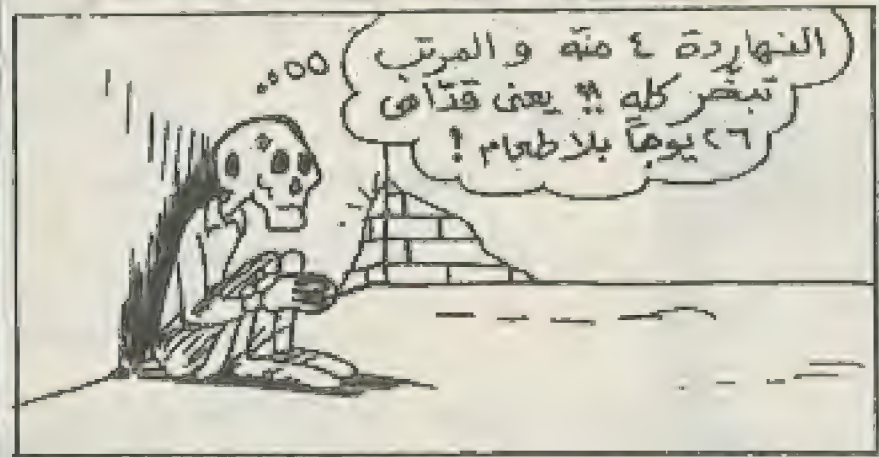 النهاردة ٤ منه و المرتب
تبخّر كله !! يعنى قدّامى
٢٦ يوماً بلا طعام !